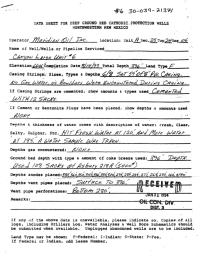 #6 30-039-21397
DATA SHEET FOR DEEP GROUND BED CATHODIC PROTECTION WELLS
NORTHWESTERN NEW MEXICO
Operator Meridian Oil Inc. Location: Unit
Name of Well/Wells or Pipeline Serviced
Canyon Largo Unit
Elevation Completion Date Total Depth 396' Land Type F
Casing Strings, Sizes, Types & Depths
No Gas, Water, or Boulders Were Encountered During Casing.
If Casing Strings are cemented, show amounts & types used Cemented
WITH 12 SACKS.
If Cement or Bentonite Plugs have been placed, show depths & amounts used
NONE
Depths & thickness of water zones with description of water: Fresh, Clear,
Salty, Sulphur, Etc. Hit Fresh Water At 120' And More Water
At 195'. A Water Sample Was Taken.
Depths gas encountered: NONE
Ground bed depth with type & amount of coke breeze used: 396' Depth
Used 109 Sacks of Asbury
Depths anodes placed:
Depths vent pipes placed: Surface To 396'
Vent pipe perforations: Bottom 280'
Remarks:
RECEIVED
OIL CON. DIV.
DIST. 3
If any of the above data is unavailable, please indicate so. Copies of all
logs, including Drillers Log, Water Analyses & Well Bore Schematics should
be submitted when available. Unplugged abandoned wells are to be included.
Land Type may be shown: F-Federal; I-Indian; S-State; P-Fee.
If Federal or Indian, add Lease Number.